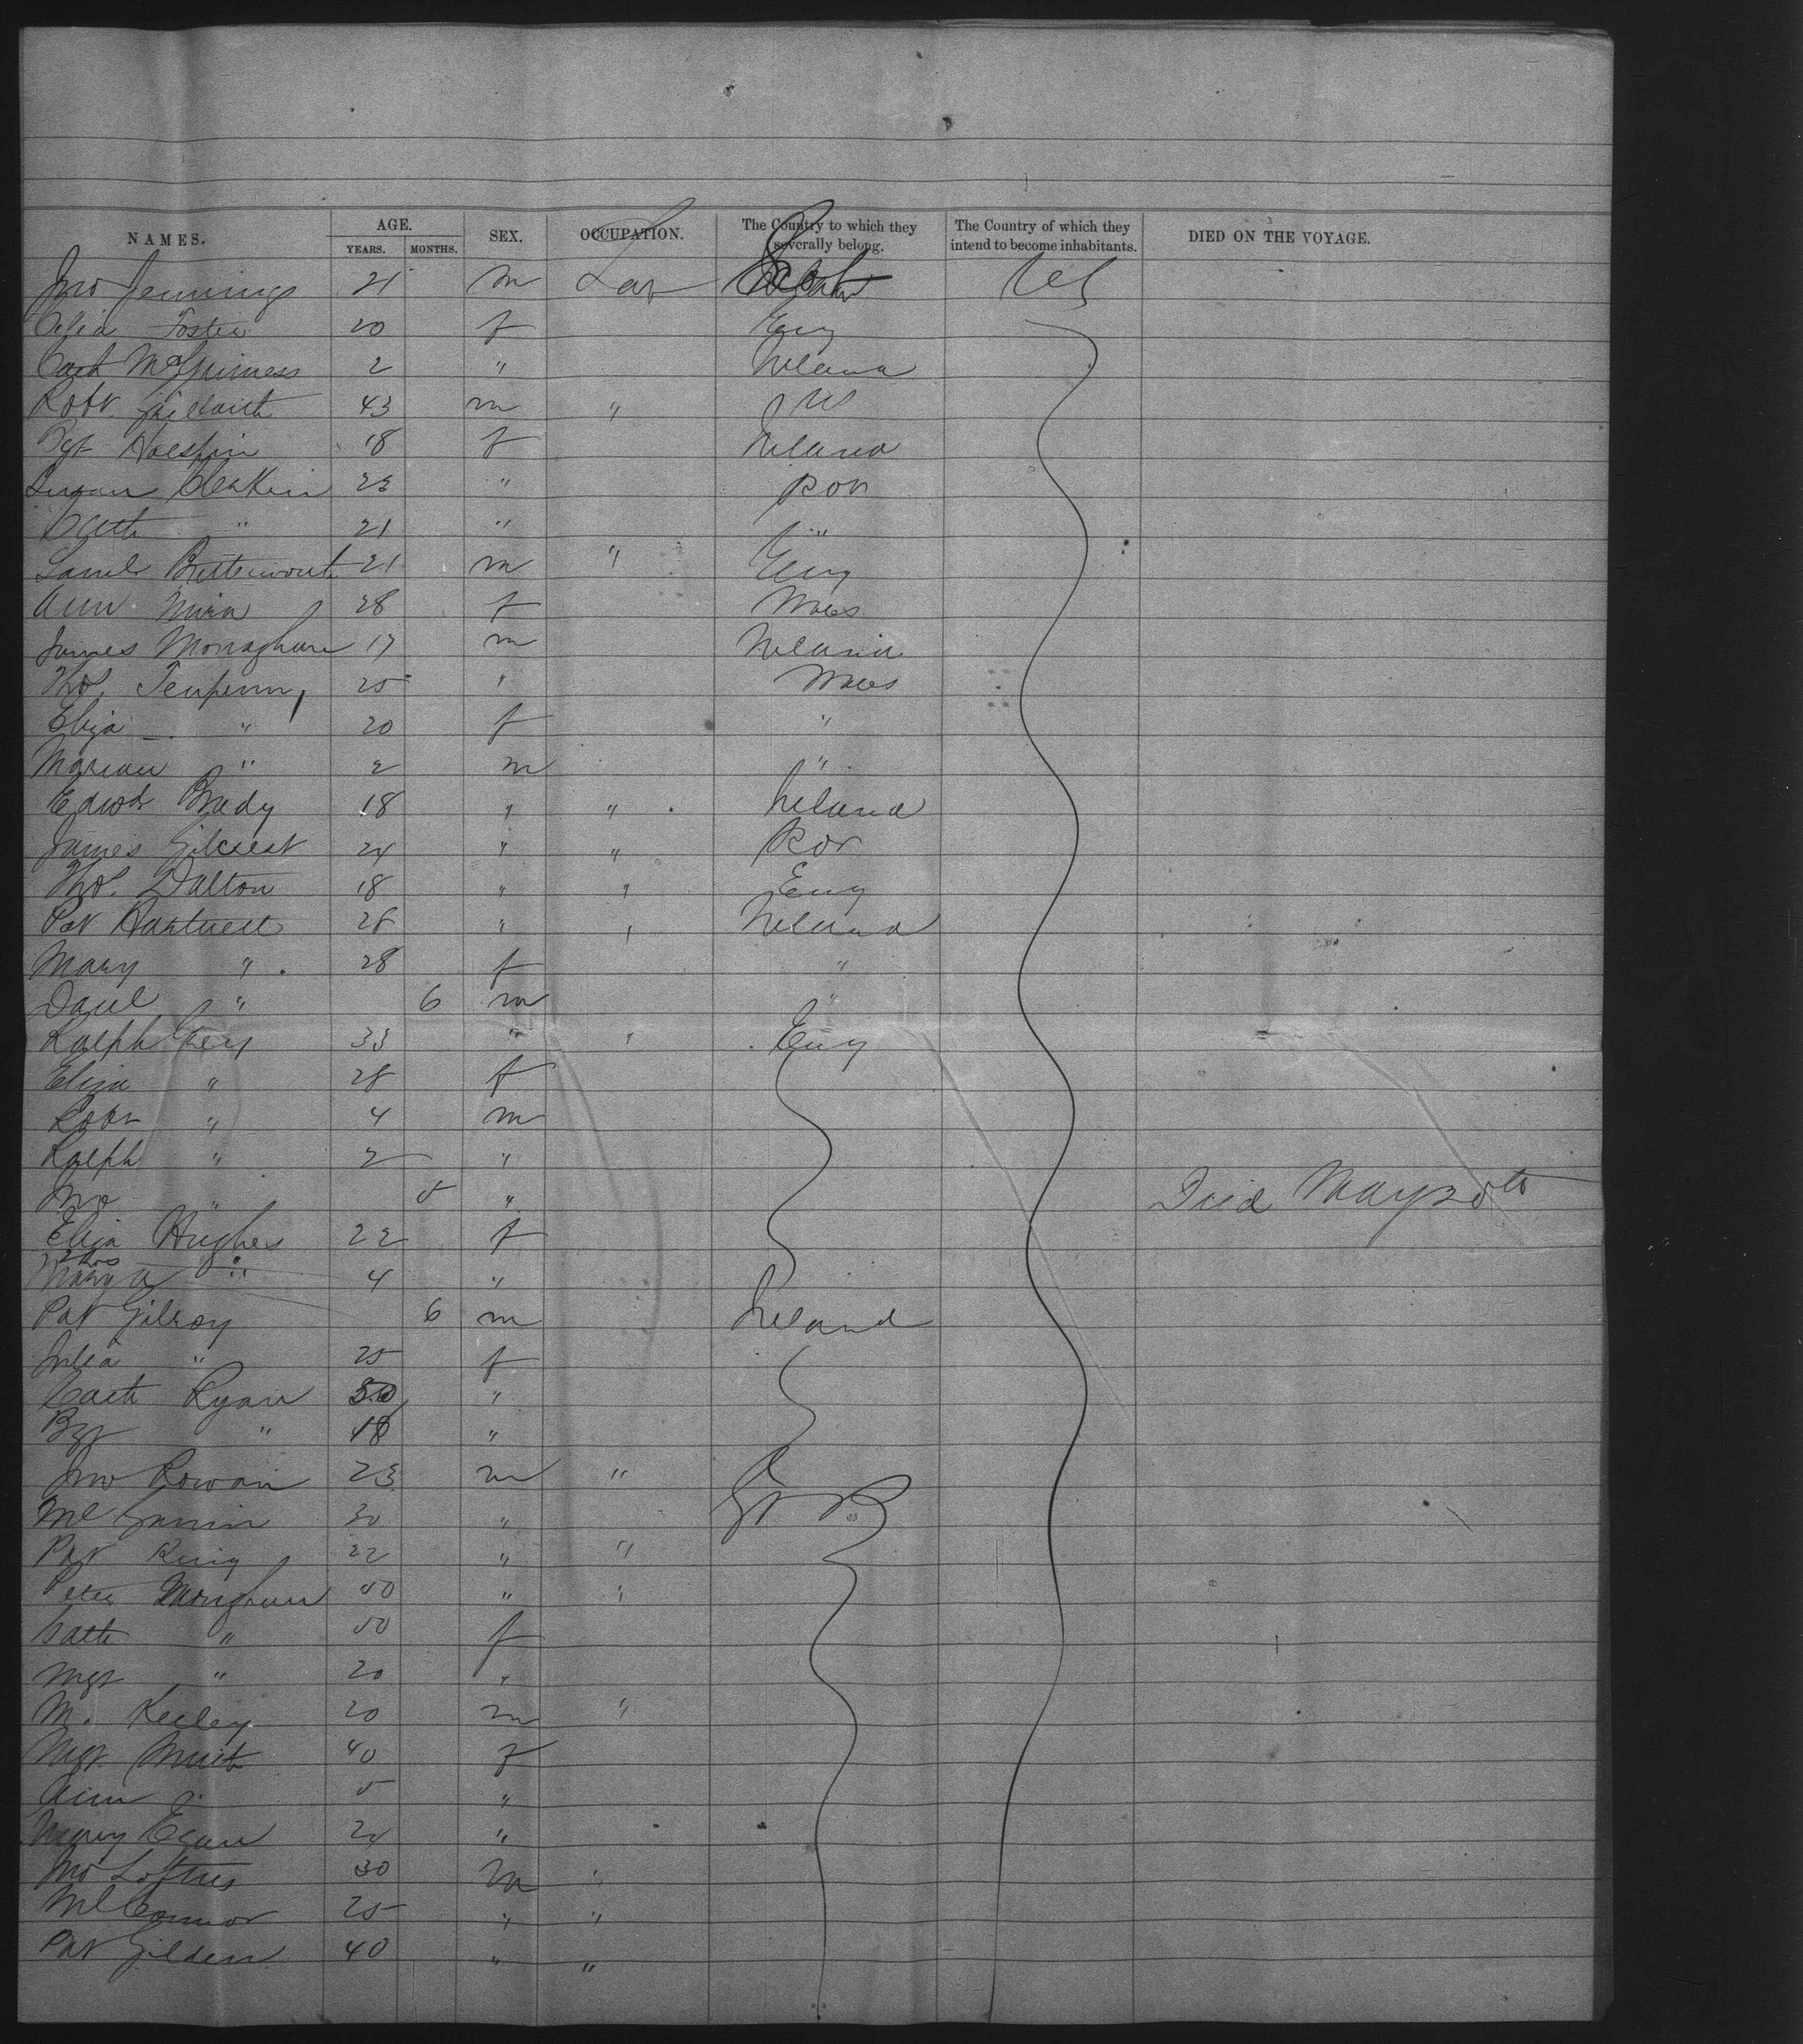 NAMES. AGE. SEX. OCCUPATION. The Country to which they severally belong. The Country of which they intend to become inhabitants. DIED ON THE VOYAGE.
YEARS. MONTHS.
Jno Jennings 21 m Lab US
Celia Foster 20 f Eng
Cath McGuinness 2 " Ireland
Robt. 43 m " US
Bgt 18 f Ireland
Susan 22
Cath " 21 " "
Saml. Butterworth 21 m " Eng
Ann 28 f Wales
James Monaghan 17 m Ireland
Thos. Tenpenny 25 " Wales
Eliza " 20 f "
Marian " 2 m "
Edwd Brady 18 " " Ireland
James Gilcrest 24 " "
Thos. Dalton 18 " " Eng
Pat Hartnett 28 " " Ireland
Mary " 28 f "
Danl " 6 m "
Ralph 33 " " Eng
Eliza " 28 f
Robt " 4 m
Ralph " 2 "
Jno " 5 " Died May 20th
Eliza Hughes 22 f
Mary A " 4 "
Pat Gilroy 6 m Ireland
Julia " 25 f
Cath Ryan 30 "
Bgt " 18 "
Jno Rowan 23 m " Gt B
Ml 30 "
Pat King 22 " "
Peter Monghan 50 " "
Cath " 50 f
Mgt " 20 "
M. Keeley 20 m "
Mgt 40 f
Ann " 5 "
Mary Egan 20 "
Jno Loftus 30 m "
Ml Connor 25 " "
Pat Gilden 40 " "